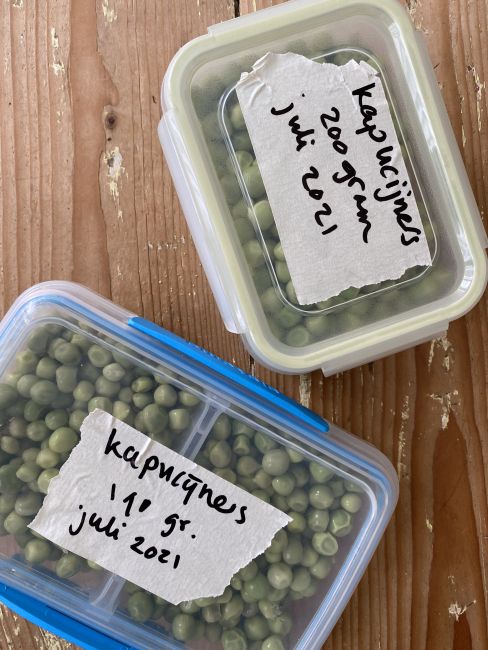 kapucijners
200 gram
juli 2021
kapucijners
190 gr.
juli 2021